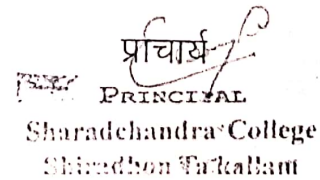 प्राचार्य
PRINCIPAL
Sharadchandra College
Shiradhon Ta Kallam